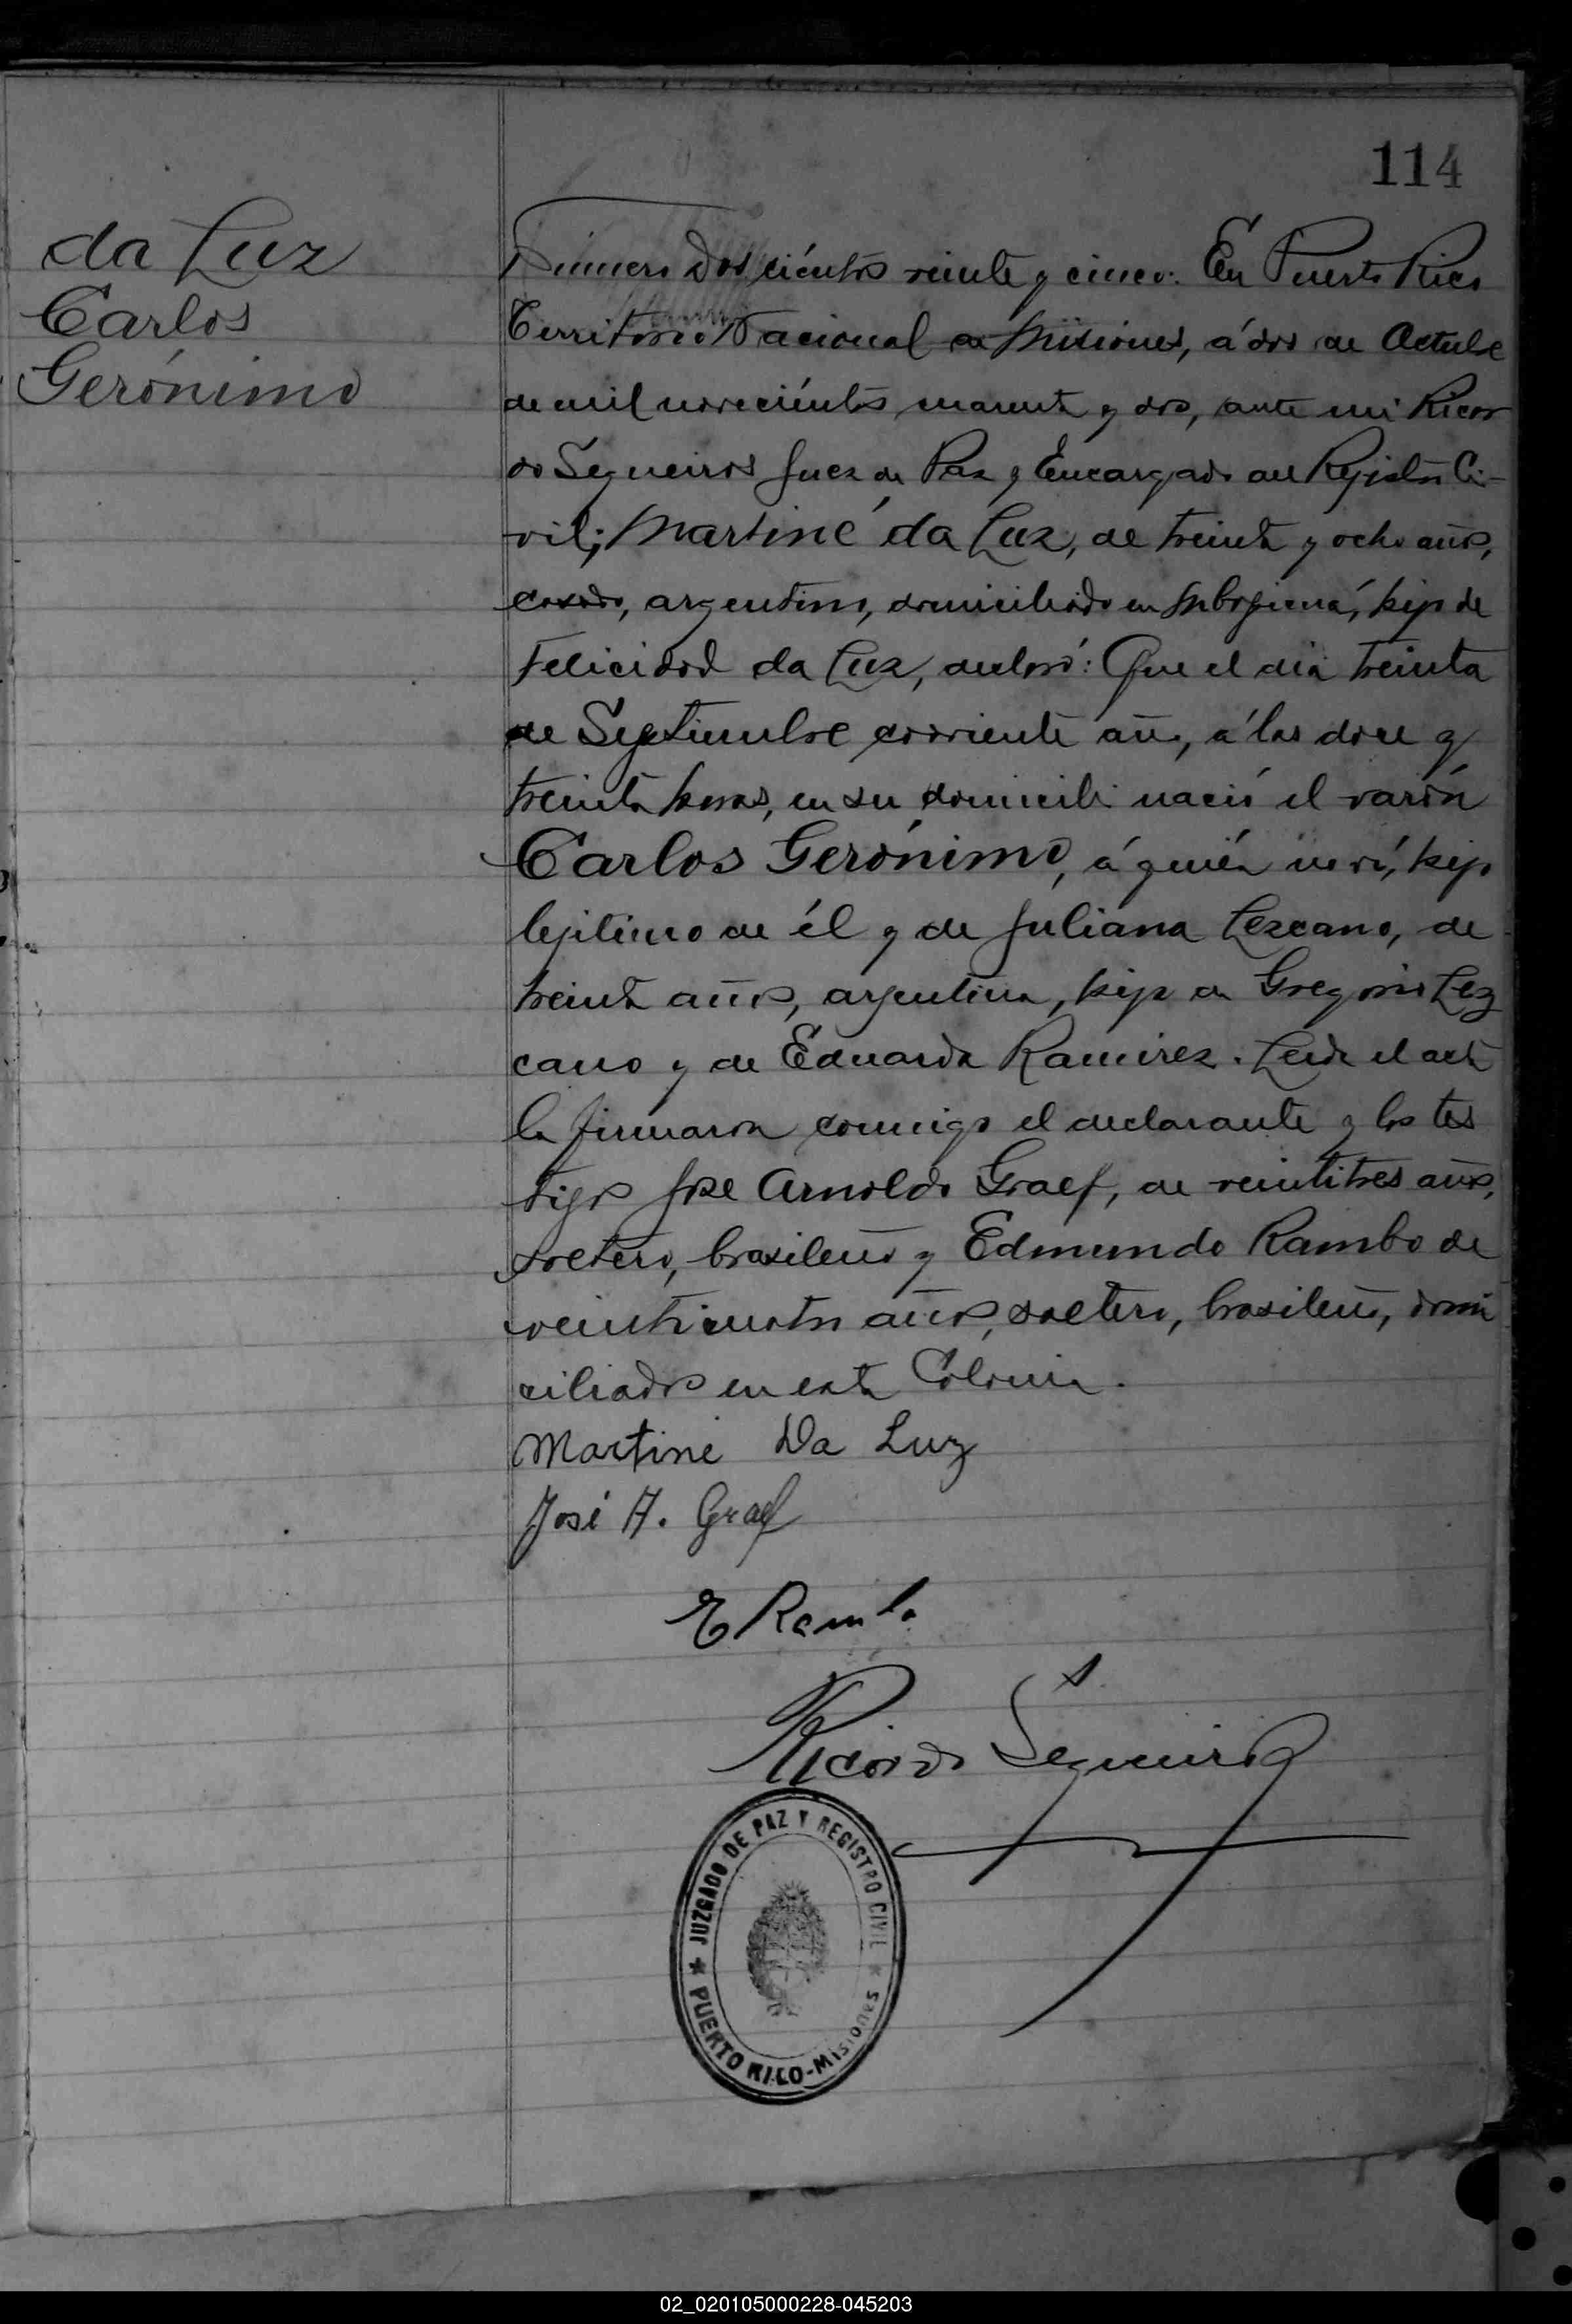 114
da Luz
Carlos
Gerónimo
Número Dosciéntos veinte y cinco. En Puerto Rico
Territorio Nacional de Misiones, á dos de Octubre
de mil noveciéntos cuarenta y dos, ante mi Ricar
do Segueiros Juez de Paz y Encargado del Rejistro Ci-
vil; Martiné da Luz, de treinta y ocho años,
casado, argentino, domiciliado en Mbopicuá, hijo de
Felicidad da Luz, declaró: Que el dia treinta
de Septiembre corriente año, á las doce y
treinta horas, en su domicilio nació el varón
Carlos Gerónimo, á quién no ví, hijo
lejitimo de él y de Juliana Lezcano, de
treinta años, argentina, hija de Gregorio Lez
cano y de Eduarda Ramirez. Leida el acta
la firmaron conmigo el declarante y los tes
tigos José Arnoldo Graef, de veintitres años,
soltero, brasileño y Edmundo Rambo de
veinticuatro años, soltero, brasileño, domi
ciliados en esta Colonia.
Martine Da Luz
José A. Graef
E Rambo
Ricardo Segueiros
JUZGADO DE PAZ Y REGISTRO CIVIL
PUERTO RICO-Misiones
02_020105000228-045203